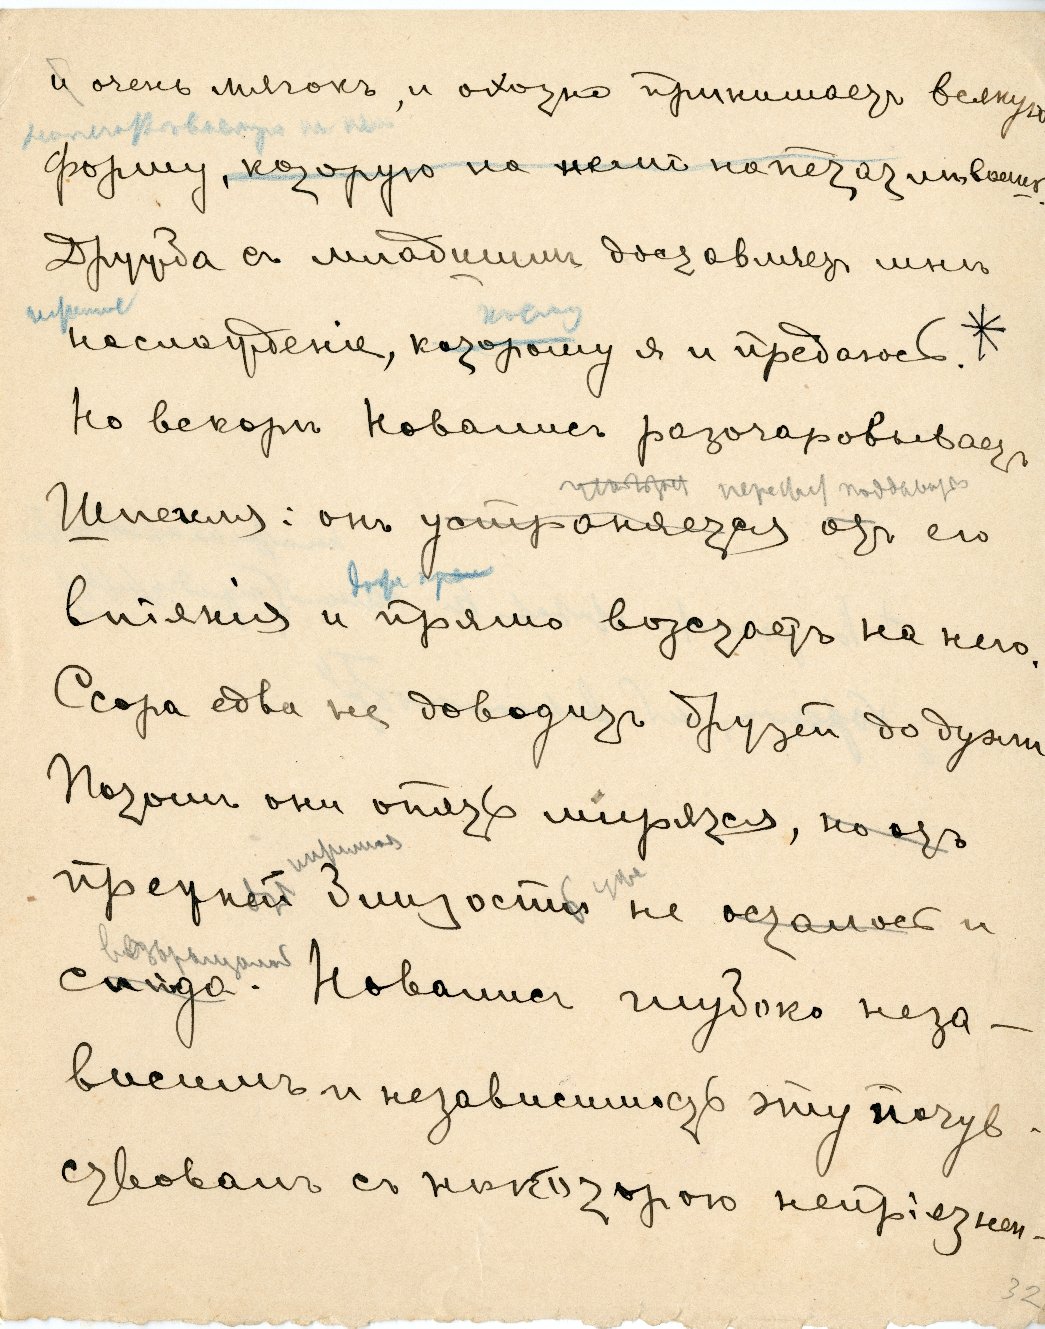 и очень мягокъ, и охотно принимаетъ всякую
форму, которую на немъ напечатлѣваешь.
Дружба съ младшимъ доставляетъ мнѣ
наслажденіе, которому я и предаюсь. *
Но вскорѣ Новалисъ разочаровываетъ
поддаваться
Шлегеля: онъ устраняется отъ его
даже прямо
вліянія и прямо возстаетъ на него.
Ссора едва не доводитъ друзей до дуэли
Потомъ они опять мирятся, но отъ
прежней близости не осталось и
возвращалась
слѣда. Новалисъ глубоко неза-
висимъ и независимость эту почув-
ствовалъ съ нѣкоторою непріезнен-
32